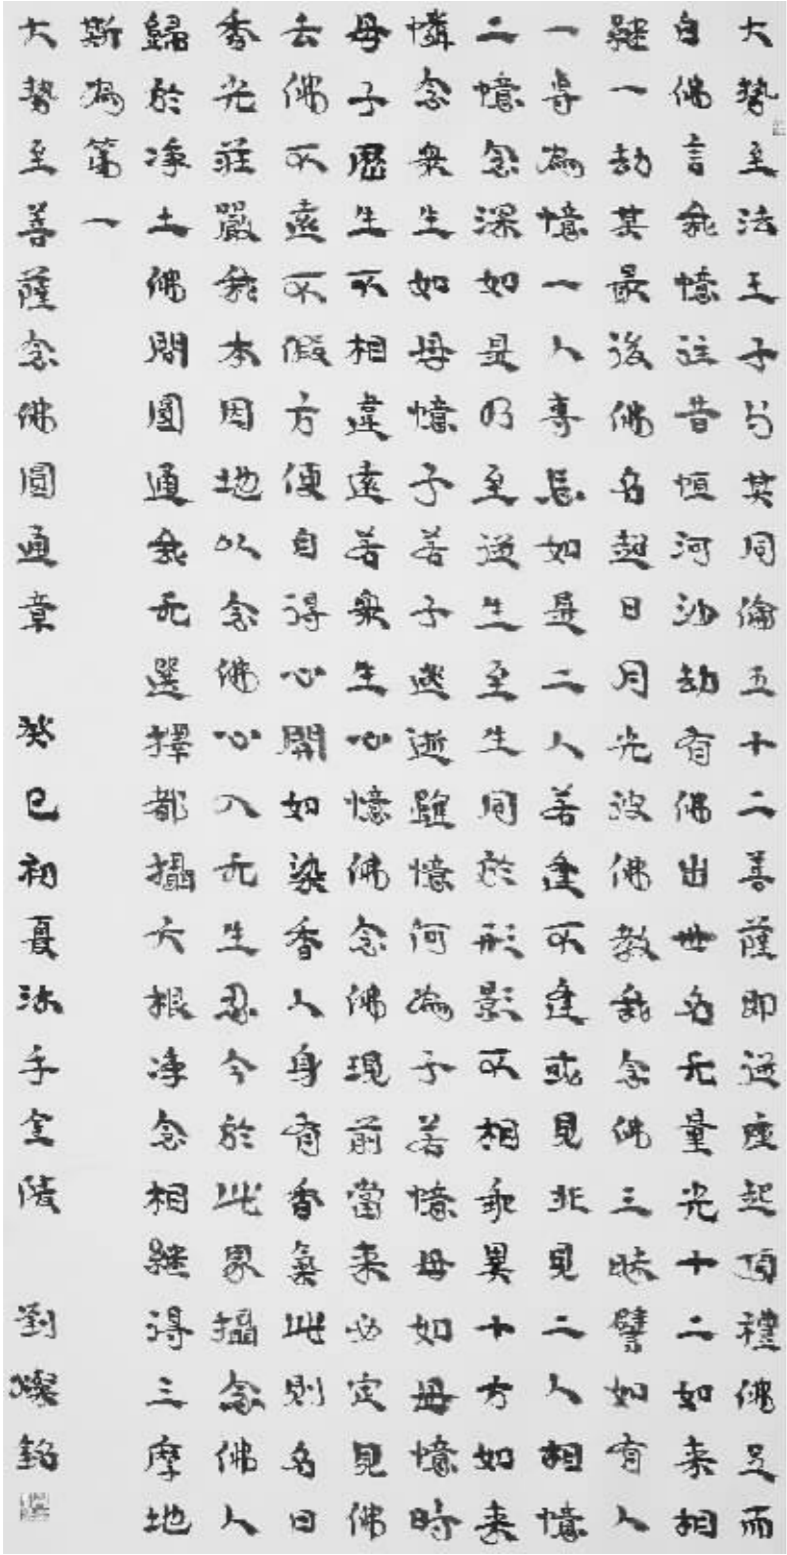 大勢至法王子与其同倫五十二菩薩即從座起頂禮佛足而
白佛言我憶往昔恒河沙劫有佛出世名无量光十二如来相
継一劫其最後佛名超日月光彼佛教我念佛三昧譬如有人
一專為憶一人專忘如是二人若逢不逢或見非見二人相憶
二憶念深如是乃至從生至生同於形影不相乖異十方如来
憐念衆生如母憶子若子逃逝雖憶何為子若憶母如母憶時
母子歷生不相違遠若衆生心憶佛念佛現前當来必定見佛
去佛不遠不假方便自得心開如染香人身有香氣此則名曰
香光莊嚴我本因地以念佛心入无生忍今於此界攝念佛人
歸於淨土佛問圓通我无選擇都攝六根淨念相継得三摩地
斯為第一
大勢至菩薩念佛圓通章 癸巳初夏沐手金陵 劉燦銘